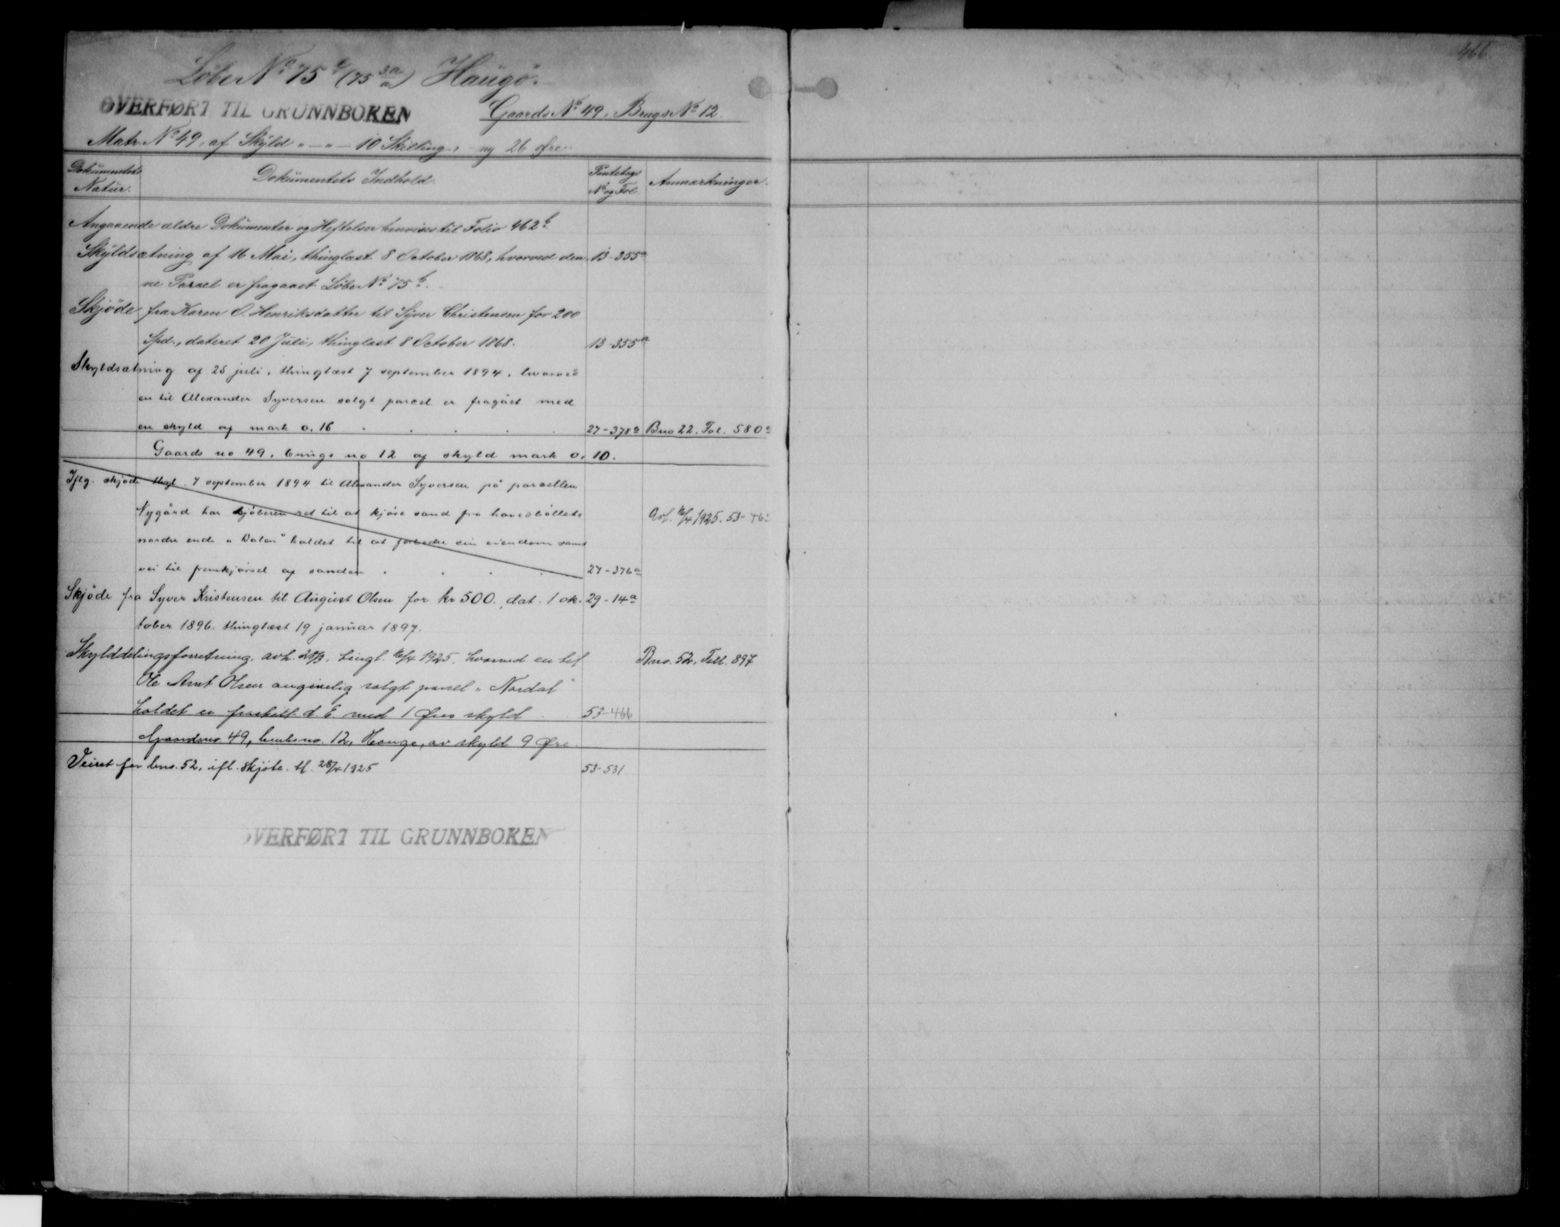 466.
Löbe No 75 e (75 3a/a) Haugö.
OVERFØRT TIL GRUNNBOKEN
Gaards No 49, Brugs No 12.
Matr No 49, af Skyld " — " — 10 Skilling, ny 26 Øre.
Dokumentets Natur.
Dokumentets Indhold.
Pantebogs No og Fol.
Anmærkninger.
Angaaende ældre Dokumenter og Heftelser henvises til Folio 462 b.
Skyldsætning af 16 Mai, thinglæst 8 October 1868, hvorved den- 13-355a
ne Parcel er fragaaet Löbe No 75 b.
Skjöde fra Karen O. Henriksdatter til Syver Christensen for 200
Spd., dateret 20 Juli, thinglæst 8 October 1868. 13-355a
Skyldsætning af 25 juli, thinglæst 7 september 1894, hvorved
en til Alexander Syversen solgt parcel er fragået med
en skyld af mark 0.16 27-378a Bno 22. Fol. 580a
Gaards no 49, brugs no 12 af skyld mark 0.10.
Iflg. skjöde thgl. 7 september 1894 til Alexander Syversen på parcellen
Nygård har kjöberen ret til at kjöre sand fra hovedböllets
nordre ende " Dalen" kaldet til at forbedre sin eiendom samt
vei til fremkjörsel af sanden 27-376a
Avl. 16/4 1925. 53-
Skjöde fra Syver Kristensen til August Olsen for kr 500, dat. 1 ok- 29-14a
tober 1896. thinglæst 19 januar 1897.
Skylddelingsforretning, avh. 28/3, tingl. 16/4 1925, hvorved en til Bno. 52, Fol. 897
Ole Arnt Olsen angivelig solgt parsel " Nordal"
kaldet er fraskilt d. E. med 1 Øres skyld 53-466
Gaardsno. 49, bruksno. 12, Hauge, av skyld 9 Øre.
Veiret for bno. 52, ifl. skjöte tl. 28/4 1925 53-531
OVERFØRT TIL GRUNNBOKEN